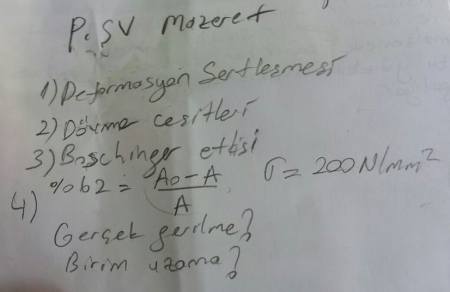 P.ŞV Mazeret
1) Deformasyon Sertleşmesi
2) Dövme çeşitleri
3) Boschinger etkisi
4) %62 = Ao-A / A, σ = 200 N/mm²
Gerçek gerilme?
Birim uzama?